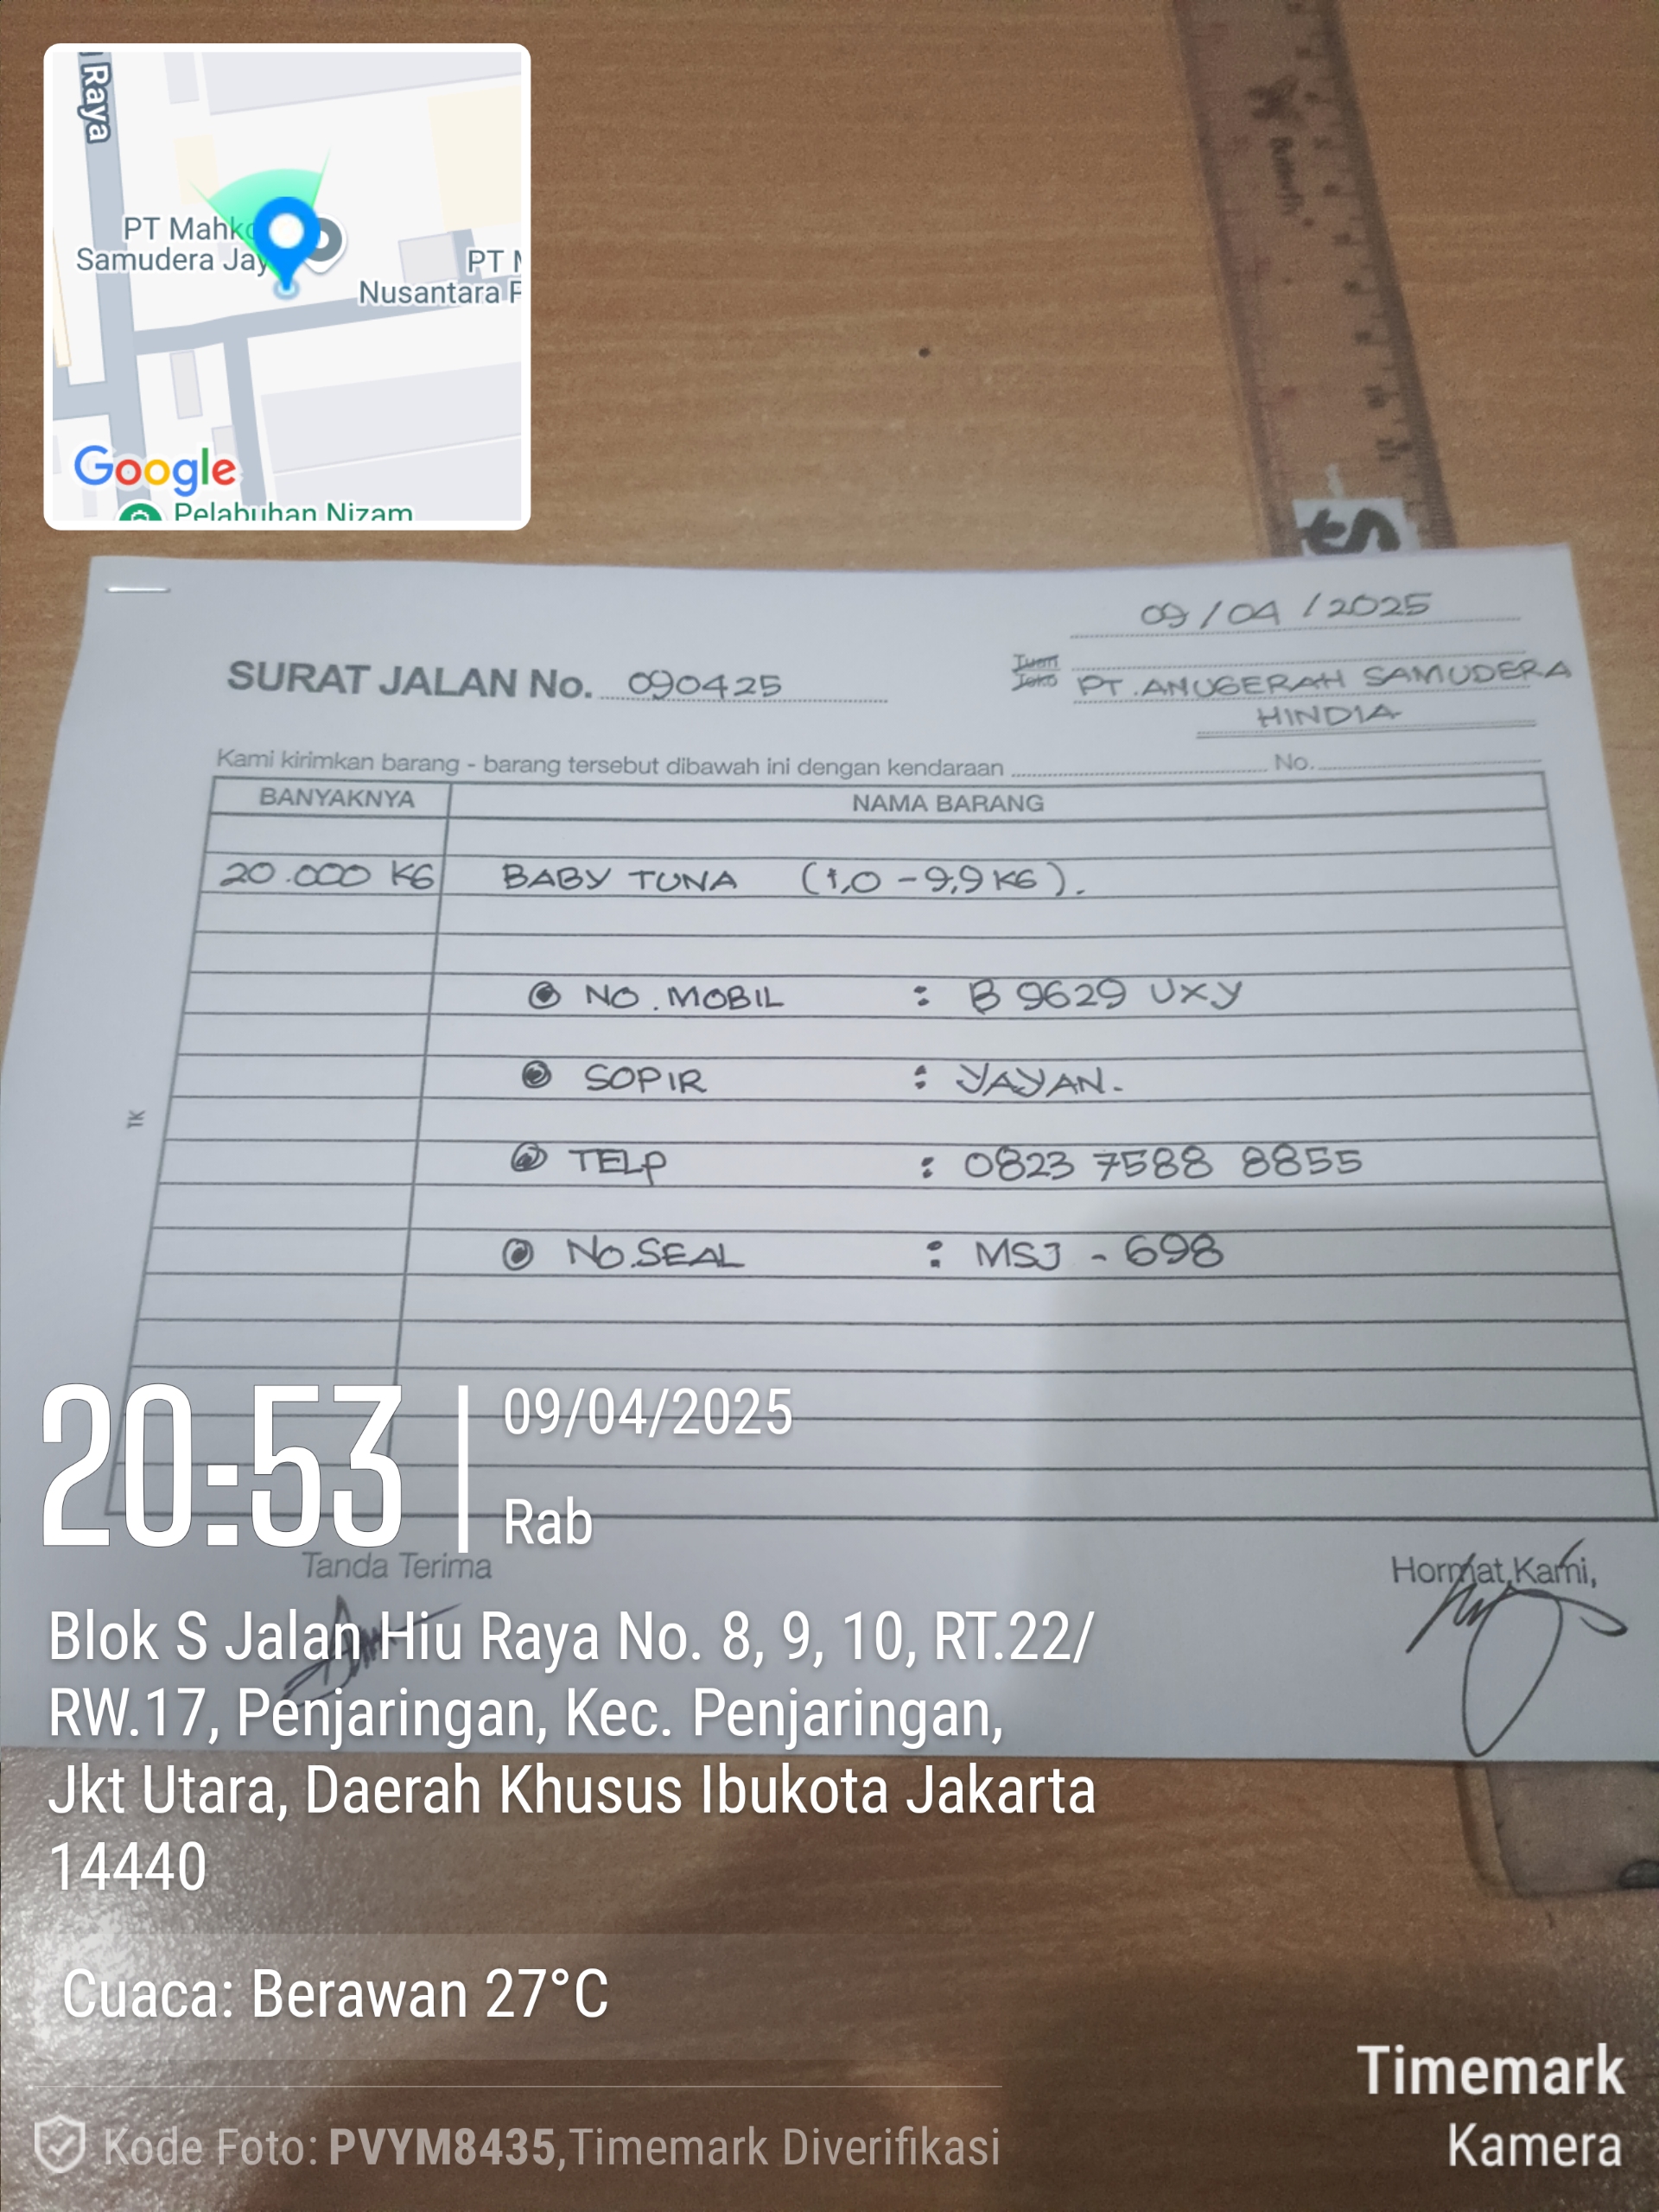 Raya
PT Mahko
Samudera Jay
PT M
Nusantara P
Google
Pelabuhan Nizam
Butterfly
09/04/2025
SURAT JALAN No. 090425
Tuan
Toko
PT. ANUGERAH SAMUDERA
HINDIA
Kami kirimkan barang - barang tersebut dibawah ini dengan kendaraan No.
BANYAKNYA NAMA BARANG
20.000 KG BABY TUNA (1,0 - 9,9 KG).
NO. MOBIL : B 9629 UXY
SOPIR : YAYAN.
TK
TELP : 0823 7588 8855
NO. SEAL : MSJ - 698
20:53
09/04/2025
Rab
Tanda Terima Hormat Kami,
Blok S Jalan Hiu Raya No. 8, 9, 10, RT.22/
RW.17, Penjaringan, Kec. Penjaringan,
Jkt Utara, Daerah Khusus Ibukota Jakarta
14440
Cuaca: Berawan 27°C
Timemark
Kamera
Kode Foto: PVYM8435,Timemark Diverifikasi